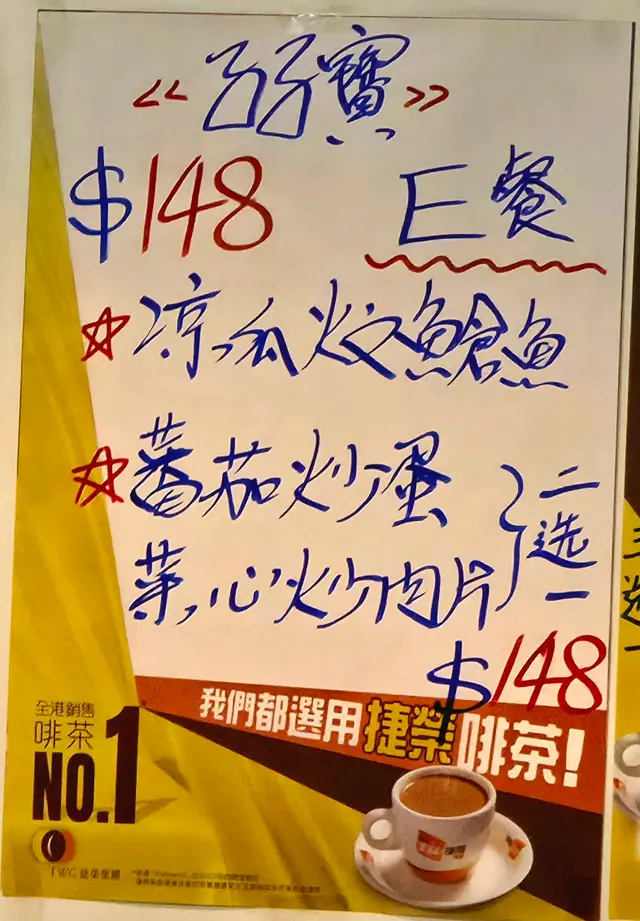 «孖寶»
$148 E餐
☆凉瓜炆鯧魚
☆蕃茄炒蛋
菜心炒肉片
二选一
$148
我們都選用捷榮啡茶!
全港銷售
啡茶
NO.1